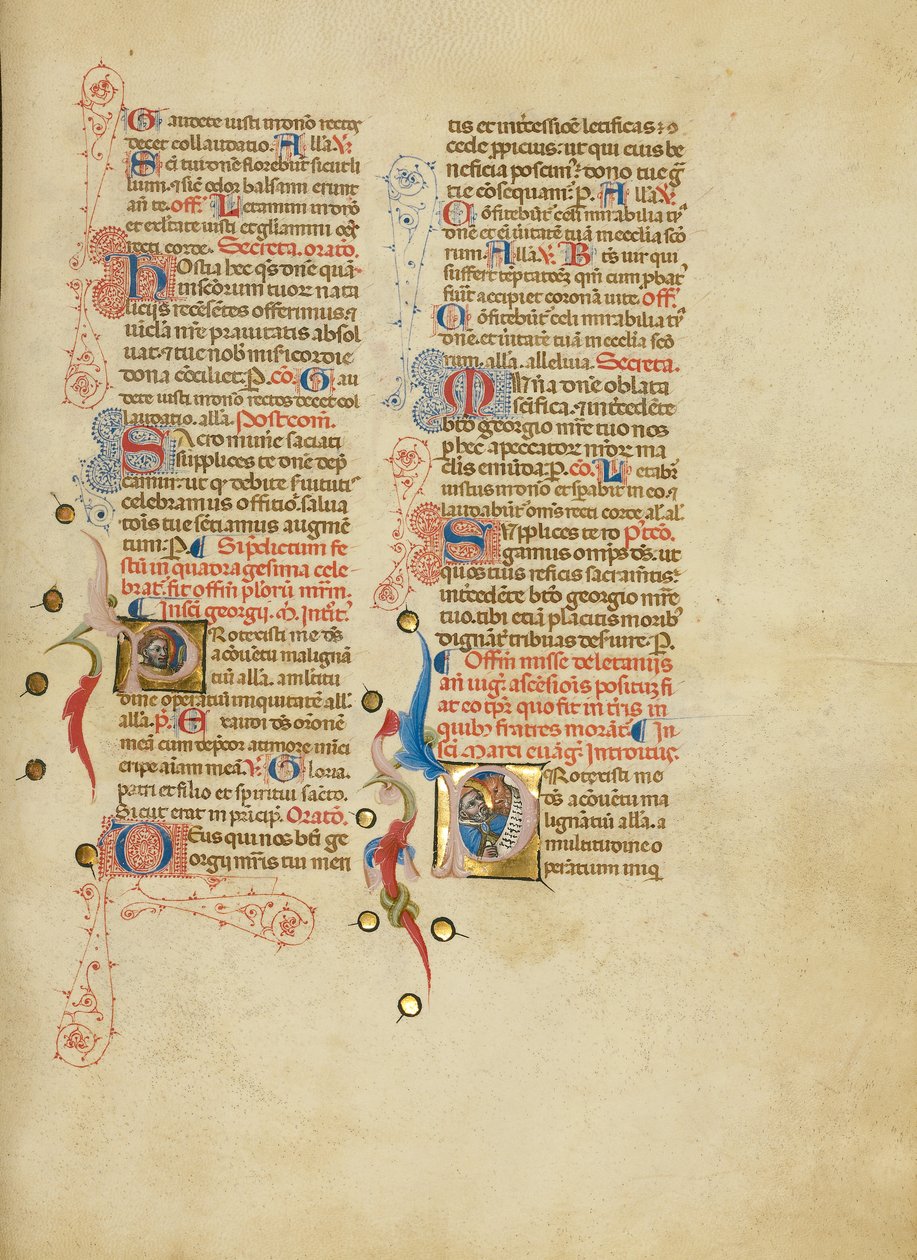 Gaudete iusti in dn̄o rectos
decet collaudatio. Alla. V.
Sc̄i tui dn̄e florebūt sicut li
lium. ⁊ sic̄ odor balsami erunt
an̄ te. off. Letamini in dn̄o
et exltate iusti et gl̄iamini om̄s
recti corde. Secreta. orato.
Hostia hec q̄s dn̄e quā
in sc̄orum tuor nata
liciis recēsētes offerimus. ⁊
uīcla nr̄e prauitatis absol
uat. ⁊ tue nob̄ misicordie
dona cōciliet. P. cō. Gau
dete iusti in dn̄o rectos decet col
laudatio. alla. Postcom̄.
Sacro mun̄e saciati
supplices te dn̄e dep̄
camur. ut q̄ debite s̄uituti'
celebramus offitio. salua
tiōis tue sētiamus augmē
tum. P. Si p̄dictum fe
stū in quadragesima cele-
brat̄. fit offm̄ pl'orū mr̄m.
In sc̄i georgii. m̄. Introit'.
Protexisti me d̄s
a cōuētu malignā
tiū alla. a m̄ltitu
dine operātiū iniquitatē all'.
alla. p̄. Exaudi d̄s or̄onē
meā cum dep̄cor a timore inīci
eripe aīam meā. V. Gloria.
patri et filio et spiritui sācto.
Sicut erat in prīcip̄. Oratō.
Deus qui nos bt̄i ge
orgii mr̄is tui meri
tis et īntc̄essiōe letificas: 9
cede p̄picius: ut qui eius be
neficia poscim'. dono tue gr̄
tie cōsequam̄. P. Alla V.
Cōfitebūt celi mirabilia tu'
dn̄e et eī ūitatē tuā in ecclīa sc̄o
rum. Alla. V. Bt̄s uir qui
suffert tēptatōez qm̄ cum p̄bat'
fuīt accipiet coronā uite. Off.
Cōfitebūt celi mirabilia tu'
dn̄e. et ūitatē tuā in ecclīa sc̄o
rum. alla. alleluia. Secreta.
Mun̄a dn̄e oblata
sc̄ifica. ⁊ int̄cedēte
bt̄o georgio mr̄e tuo nos
p̄ hec a peccator̄ nr̄or ma
cl'is emūda. P. cō. Letabit̄
iustus in dn̄o et sp̄abit in eo. ⁊
laudabūt om̄s recti corde al'. al'.
Supplices te ro P'tcō.
gamus om̄ps d̄s. ut
quos tuis reficis sacram̄tis:
int̄cedēte bt̄o georgio mr̄e
tuo. tibi etiā placitis morib'
dignāt̄ tribuas des̄uire. P.
Offm̄ misse de letaniis
an̄ uig'. ascēsiōis positūz fi
at eo tp̄r quo fit in t̄ris in
quib' fratres morāt̄. In
sc̄i Marci euāg'. Introitus.
Protexisti me
d̄s a cōuētu ma
lignātiū alla. a
multitudine o
perātium iniq̄